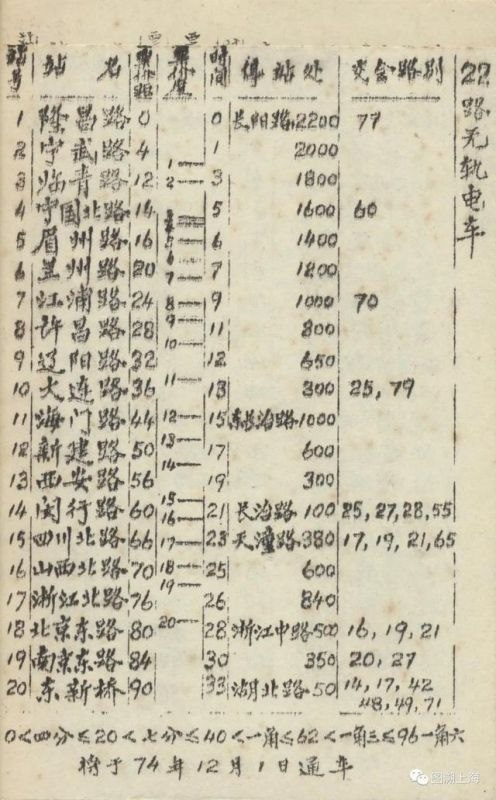 22路无轨电车
站号 站名 票价距 票价度 时间 停站处 交会路别
1 隆昌路 0 0 长阳路 2200 77
2 宁武路 4 1 1 2000
3 临青路 12 2 3 1800
4 宁国北路 14 5 1600 60
5 眉州路 16 5 6 1400
6 兰州路 20 7 7 1200
7 江浦路 24 8 9 1000 70
8 許昌路 28 9 10 11 800
9 辽阳路 32 12 650
10 大连路 36 11 13 300 25,79
11 海门路 44 12 15 东长治路 1000
12 新建路 50 13 14 17 600
13 西安路 56 19 300
14 闵行路 60 15 16 21 长治路 100 25,27,28,55
15 四川北路 66 17 23 天潼路 380 17,19,21,65
16 山西北路 70 18 25 600
17 浙江北路 76 19 26 840
18 北京东路 80 20 28 浙江中路 500 16,19,21
19 南京东路 84 30 350 20,27
20 东新桥 90 33 湖北路 50 14,17,42
48,49,71
0<四分≤20<七分≤40<一角≤62<一角三≤96一角六
将于74年12月1日通车
图溯上海